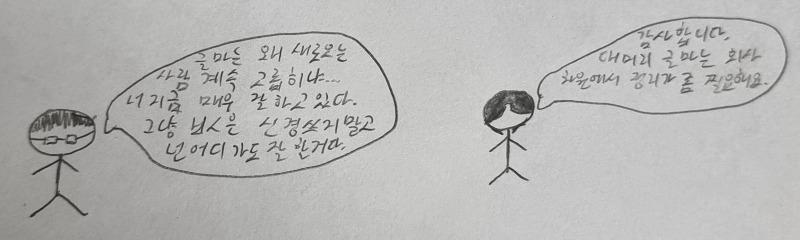 글마는 왜 새로오는
사람 계속 그럽히냐...
너 지금 매우 잘 하고 있다.
그냥 님스은 신경쓰지말고
넌 어디 가도 잘 한거다.
감사합니다.
대머리 글마는 회사
차원에서 정리가 좀 필요해요.